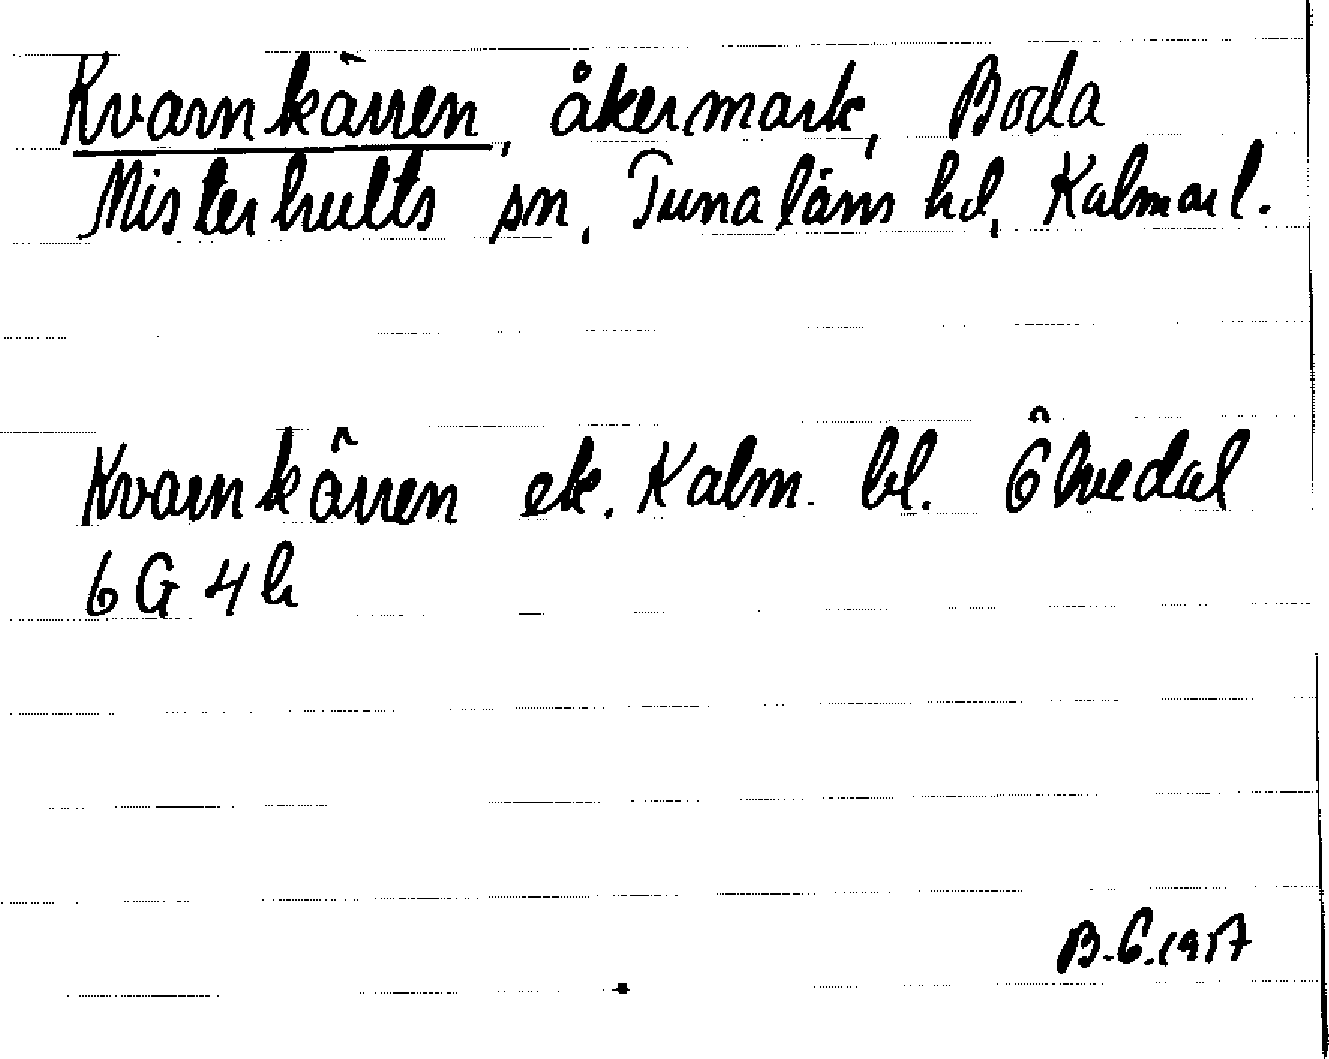 Kvarnkärren, åkermark, Boda
Misterhults sn, Tunaläns hd, Kalmar l.
Kvarnkärren ek. Kalm. bl. Ölvedal
6G 4h
B.G. 1957